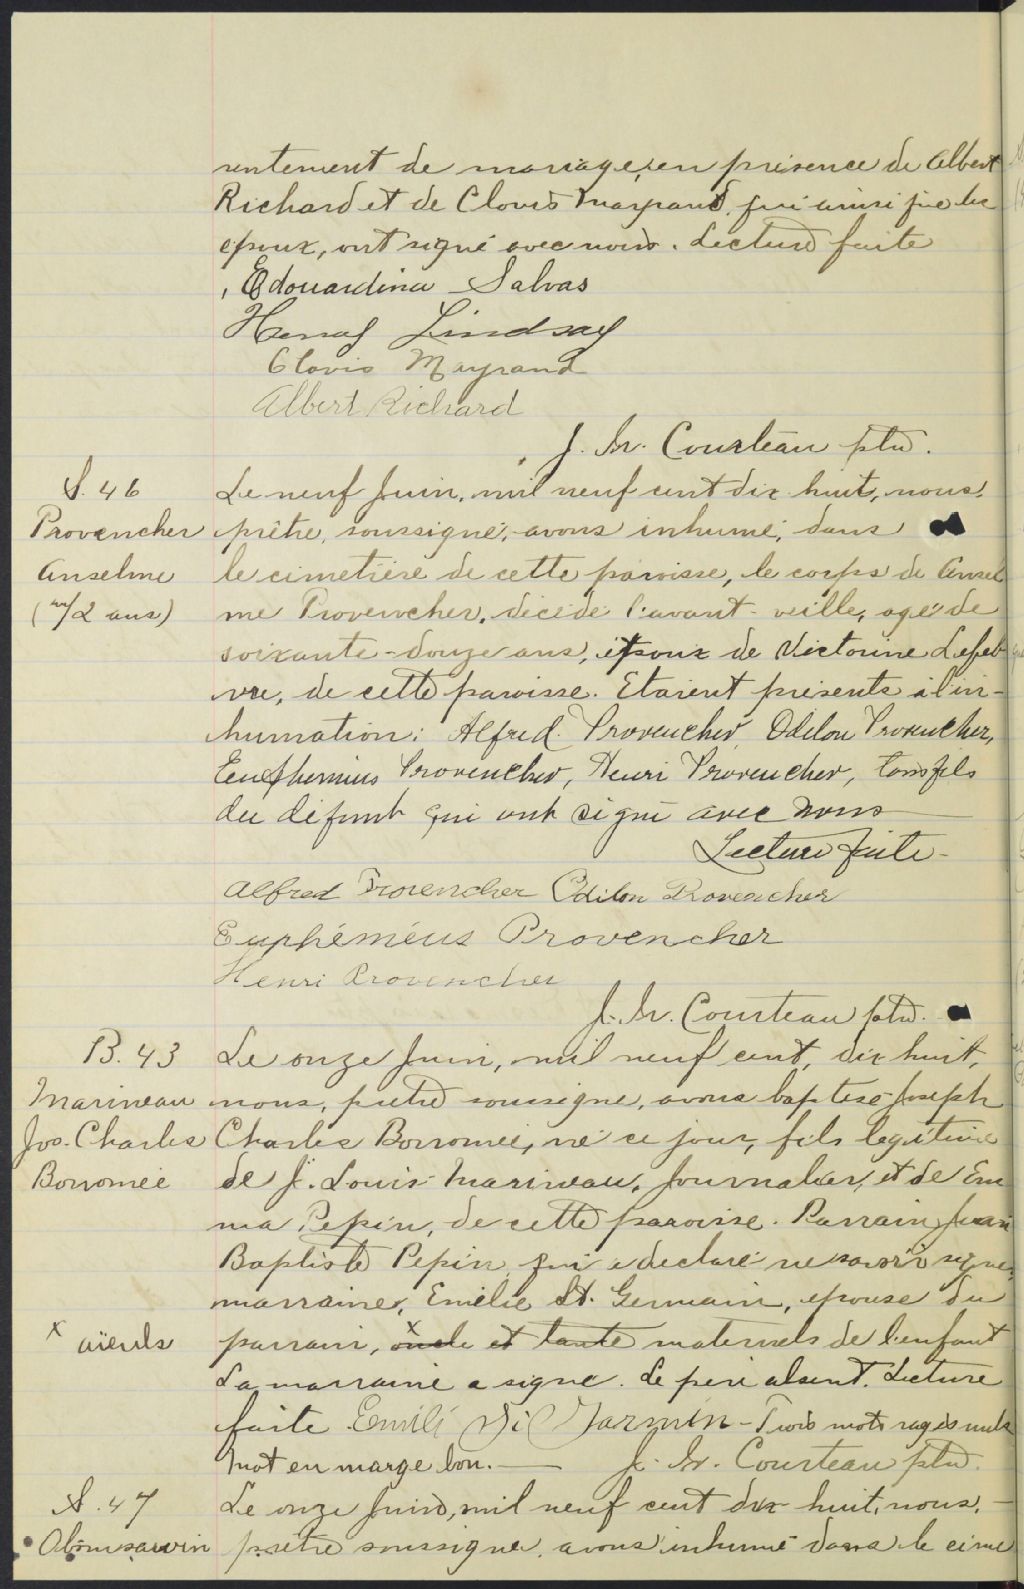 sentement de mariage, en présence de Albert
Richard et de Clovis Mayrand, qui ainsi que les
époux, ont signé avec nous. Lecture faite
Edouardina Salvas
Henry Lindsay
Clovis Mayrand
Albert Richard
J. Courteau ptre.
S. 46
Provencher
Anselme
(72 ans)
Le neuf Juin, mil neuf cent dix huit, nous,
prêtre, soussigné, avons inhumé, dans
le cimetière de cette paroisse, le corps de Ansel
me Provencher, décédé l'avant-veille, agé de
soixante-douze ans, époux de Victorine Lefeb
vre, de cette paroisse. Etaient présents à l'in-
humation: Alfred Provencher, Odilon Provencher,
Euphemius Provencher, Henri Provencher, tous fils
du défunt qui ont signé avec nous
Lecture faite-
Alfred Provencher Odilon Provencher
Euphéméus Provencher
Henri Provencher
J. Courteau ptre.
B. 43
Marineau
Jos. Charles
Borromée
Le onze Juin, mil neuf cent, dix huit,
nous, prêtre soussigné, avons baptisé Joseph
Charles Borromée, né ce jour, fils légitime
de J. Louis Marineau, Journalier, et de Em
ma Pepin, de cette paroisse. Parrain Jean
Baptiste Pepin, qui a déclaré ne savoir signer,
marraine, Emélie St. Germain, épouse du
x aïeuls
parrain, x oncle et tante maternels de l'enfant
La marraine a signé. Le père absent. Lecture
faite Emili Jarmin - Trois mots rayés nuls
Mot en marge bon. — J. Courteau ptre.
S. 47
Obomsawin
Le onze Juin, mil neuf cent dix huit, nous,
prêtre soussigné, avons inhumé dans le cime